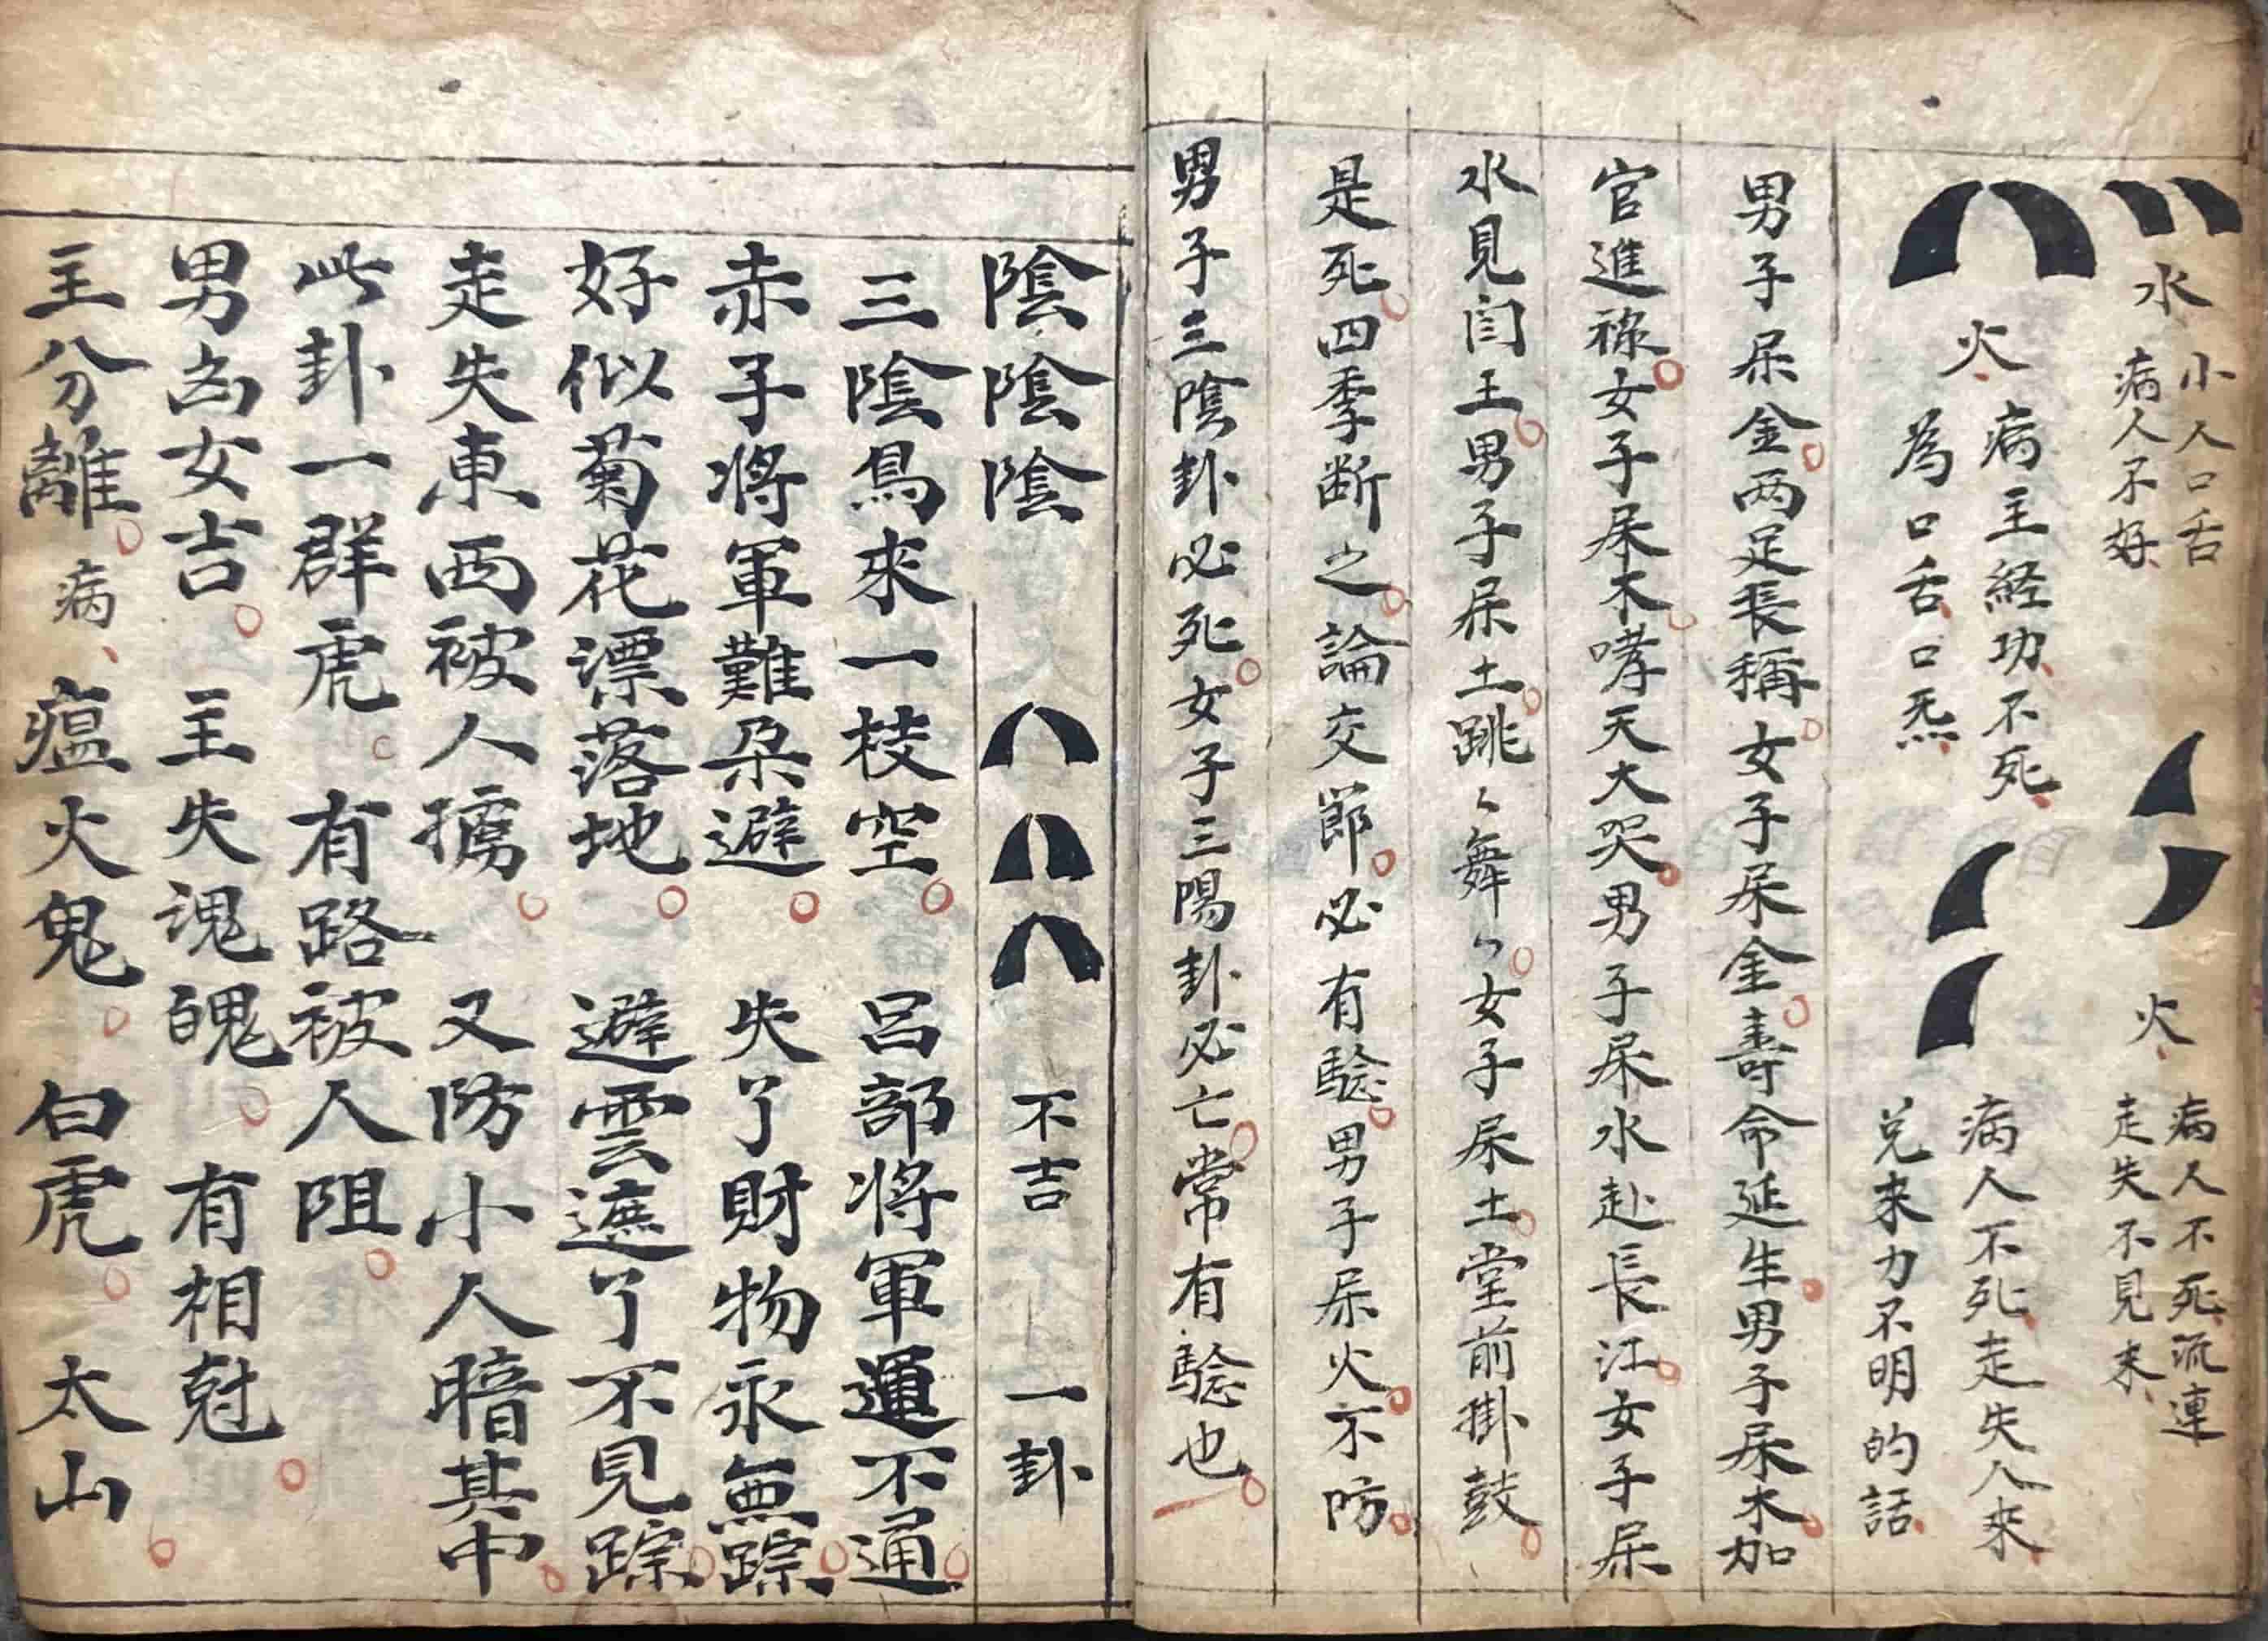 水
小人口舌
病人不好
火
病人不死流連
走失不見来
火
病主経功不死
為口舌口炁
病人不死走失人來
兑来力不明的話
男子屎金兩足長稱女子屎金壽命延生男子屎木加
官進祿女子屎木嗲天大哭男子屎水赴長江女子屎
水見闫王男子屎土跳々舞々女子屎土堂前掛鼓
是死四季断之論交節必有騐男子屎火不防
男子三陰卦必死女子三陽卦必亡常有騐也
陰陰陰 不吉 一卦
三陰鳥來一枝空 呂部將軍運不通
赤子將軍難朵避 失了財物永無踪
好似菊花漂落地 避雲遮了不見踪
走失東西被人擄 又防小人暗其中
此卦一群虎 有路被人阻
男凶女吉 主失魂魄 有相尅
主分離 病瘟火鬼 白虎 太山